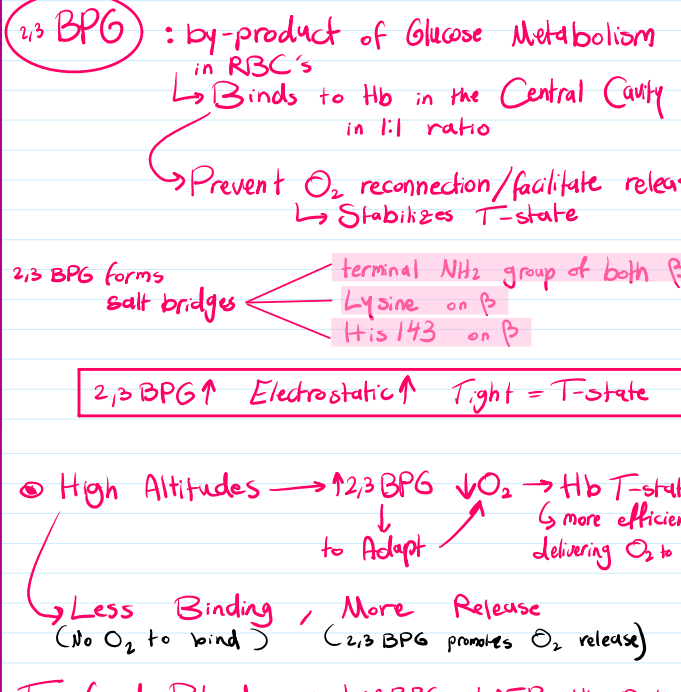 2,3 BPG : by-product of Glucose Metabolism
in RBC's
↳ Binds to Hb in the Central Cavity
in 1:1 ratio
→ Prevent O₂ reconnection/facilitate releas
↳ Stabilizes T-state
2,3 BPG forms
salt bridges
terminal NH₂ group of both β
Lysine on β
His 143 on β
2,3 BPG↑ Electrostatic↑ Tight = T-state
High Altitudes → ↑2,3 BPG ↓O₂ → Hb T-stat
↳ more efficien
to Adapt
delivering O₂ to
↳ Less Binding, More Release
(No O₂ to bind) (2,3 BPG promotes O₂ release)